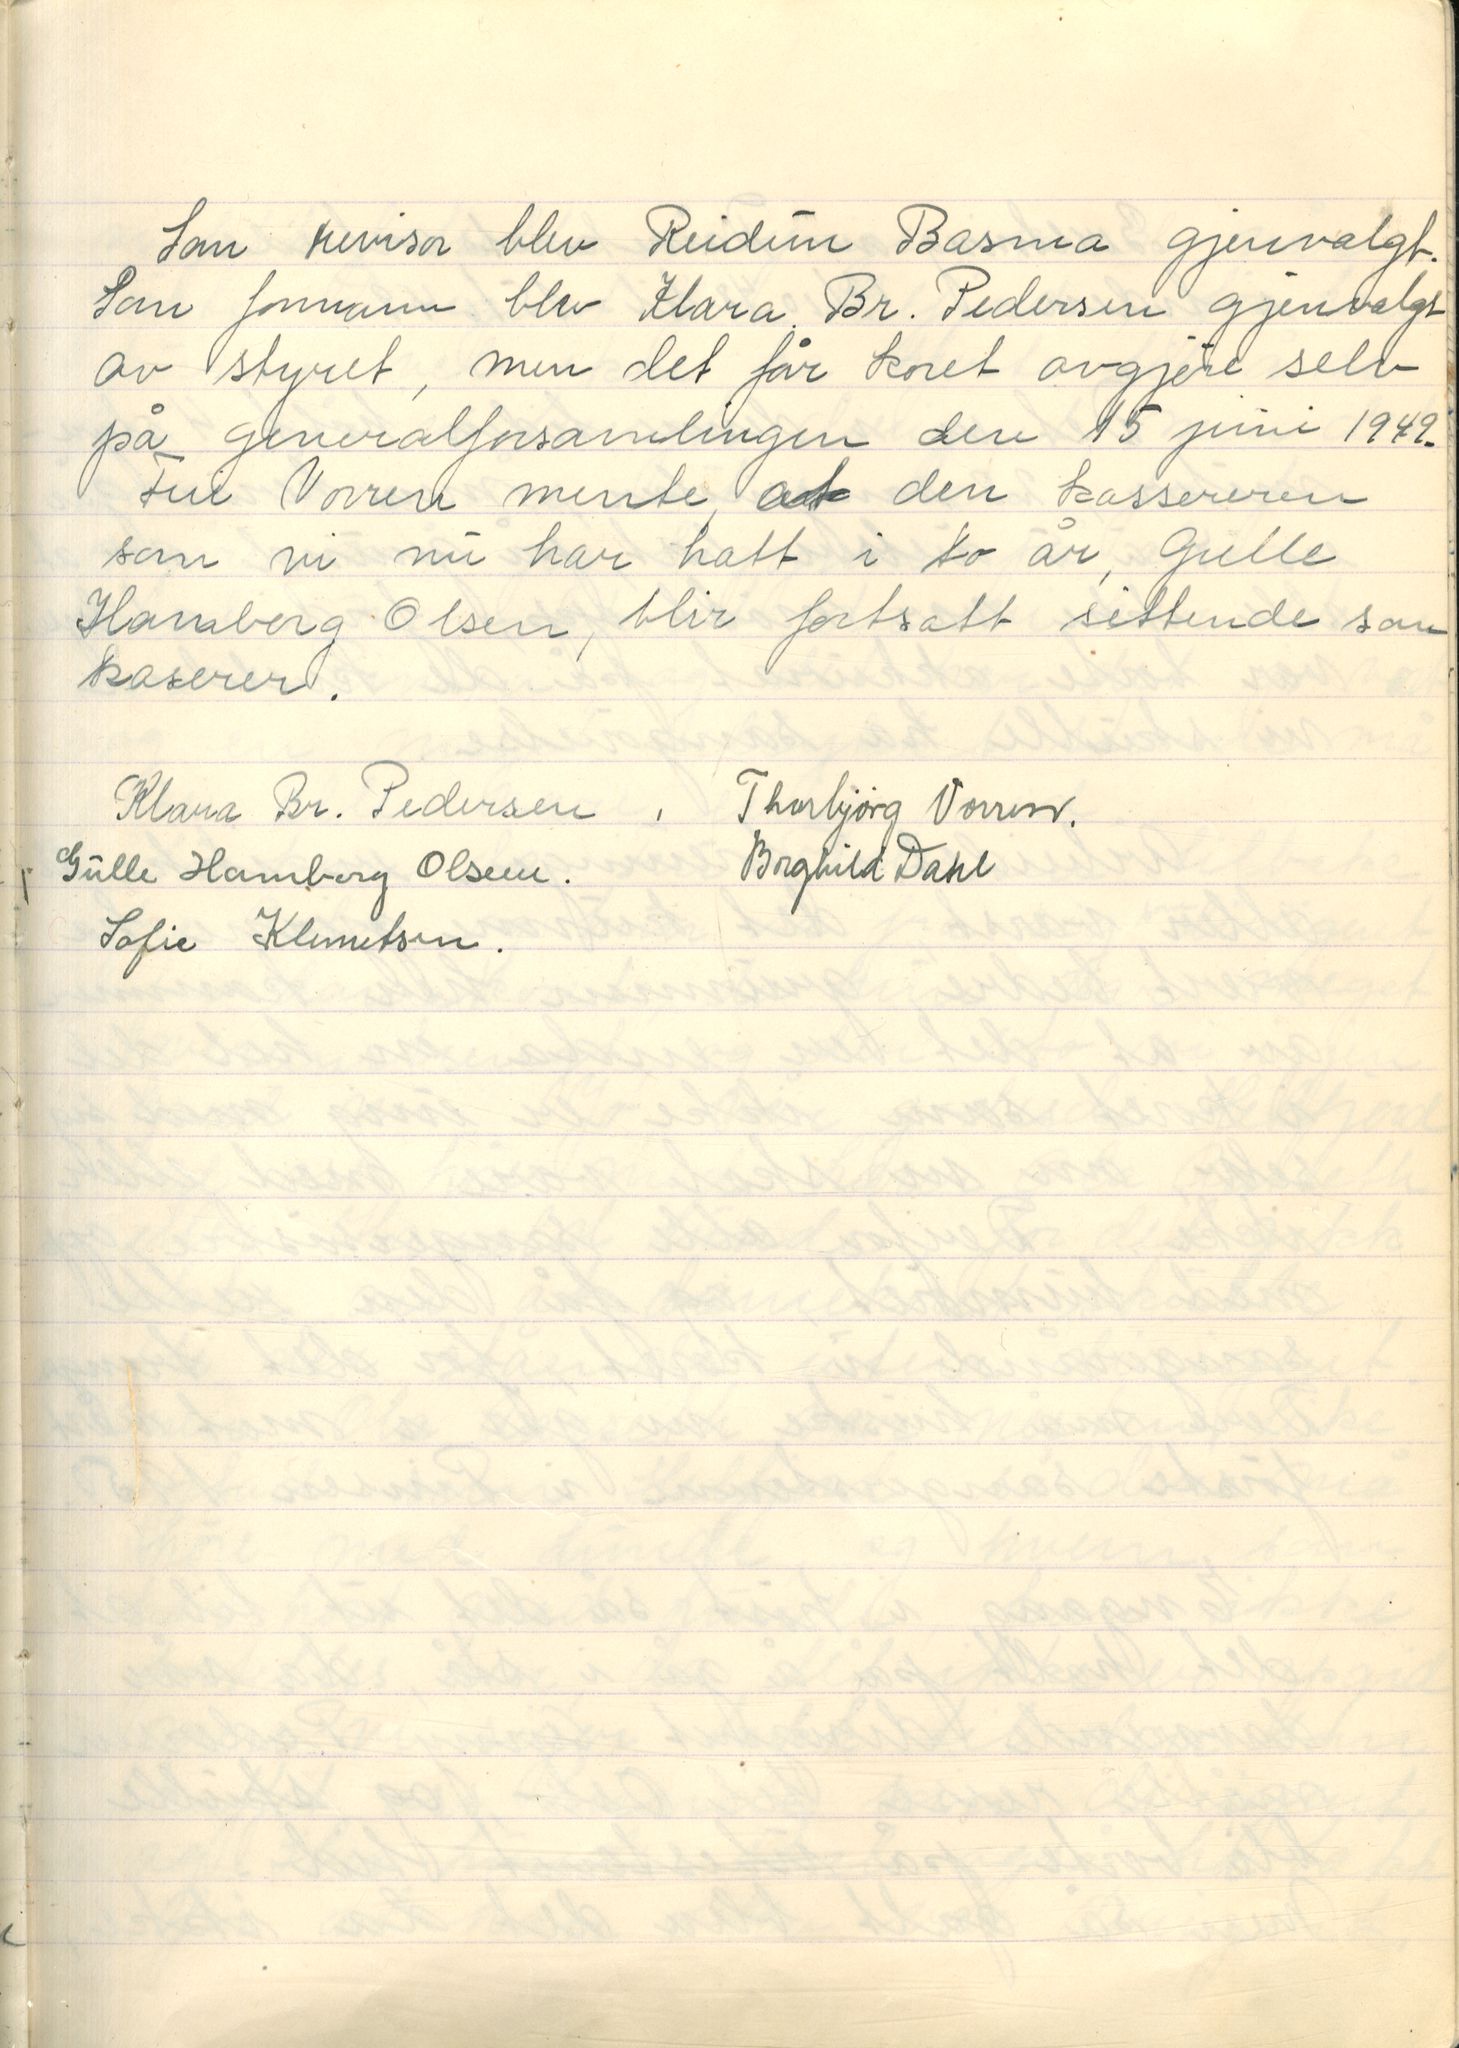 Som revisor blev Reidun Basma gjenvalgt.
Som formann blev Klara Br. Pedersen gjenvalgt
av styret, men det får koret avgjøre selv
på generalforsamlingen den 15 juni 1949.
Fru Vorren mente, at den kassereren
som vi nu har hatt i to år, Gulle
Hamberg Olsen, blir fortsatt sittende som
kaserer.
Klara Br. Pedersen, Thorbjörg Vorren.
Gulle Hamberg Olsen. Borghild Dahl
Sofie Klemetsen.